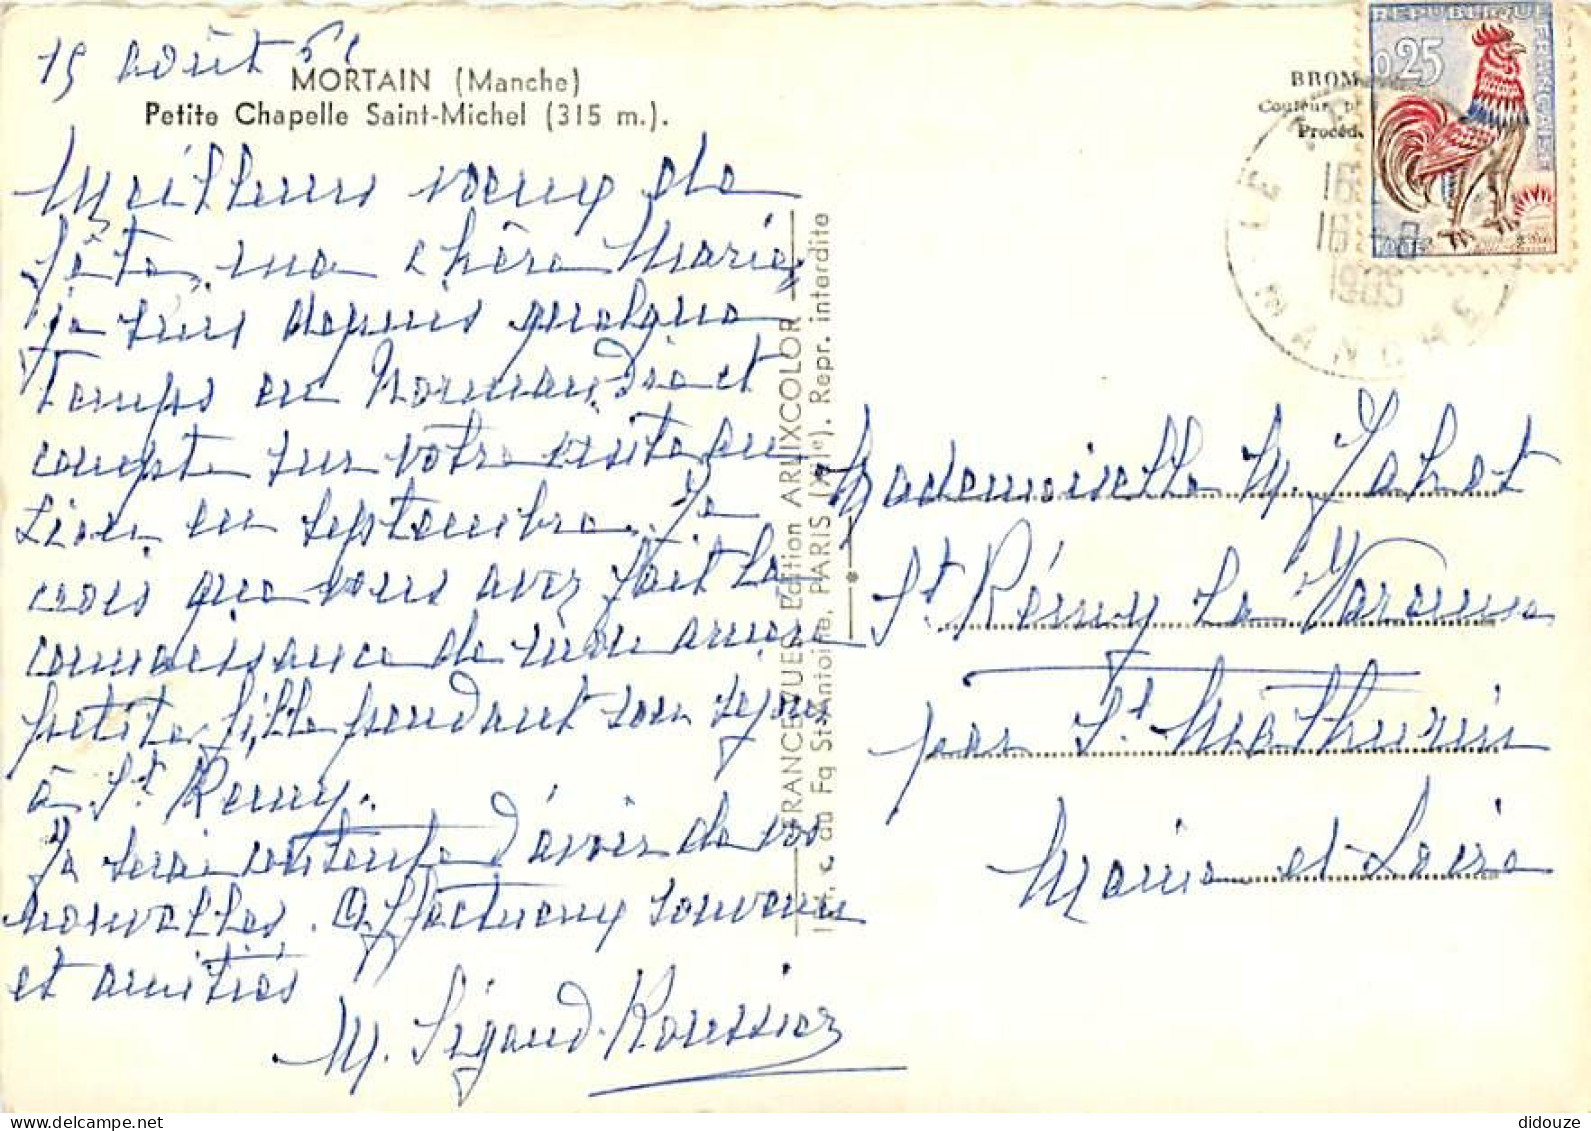 15 août 65
MORTAIN (Manche)
Petite Chapelle Saint-Michel (315 m.).
Meilleurs voeux de
fête, ma chère Marie,
je suis depuis quelque
temps en Normandie et
compte sur votre visite au
Lion en septembre. Je
crois que vous avez fait la
connaissance de mon amie
petite fille pendant son séjour
à St Remy.
Je serai contente d'avoir de vos
nouvelles. Affectueux souvenir
et amitiés
M. Sigaud-Roussier
FRANCE VUES Edition ARLIXCOLOR
au Fg St-Antoine, PARIS (XIIe). Repr. interdite
BROM
Couleur
Procéd
REPUBLIQUE FRANÇAISE
0,25
LE
16
16 - 8
1965
MANCHE
Mademoiselle M. Jahot
St Rémy la Varenne
par St Mathurin
Maine et Loire
didouze